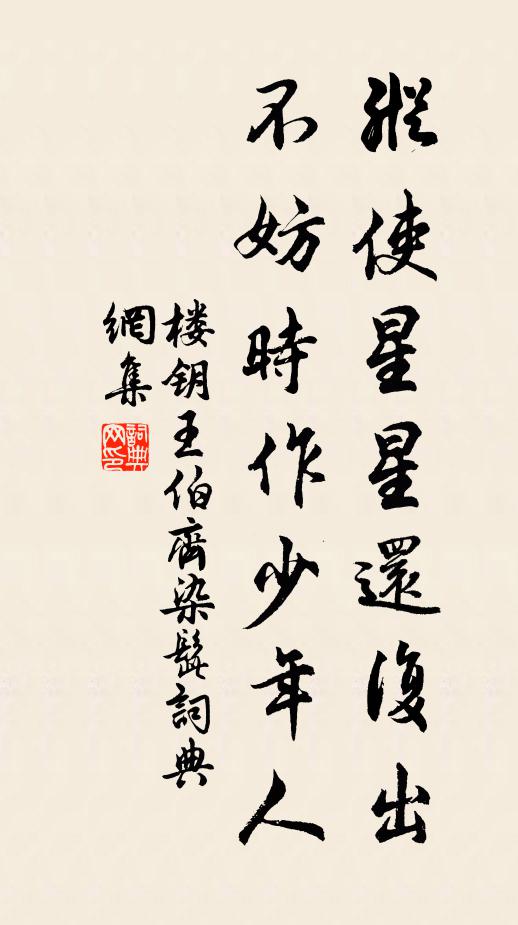 縱使星星還復出
不妨時作少年人
楼钥王伯齊染髭詞典
網集
詞典
网印